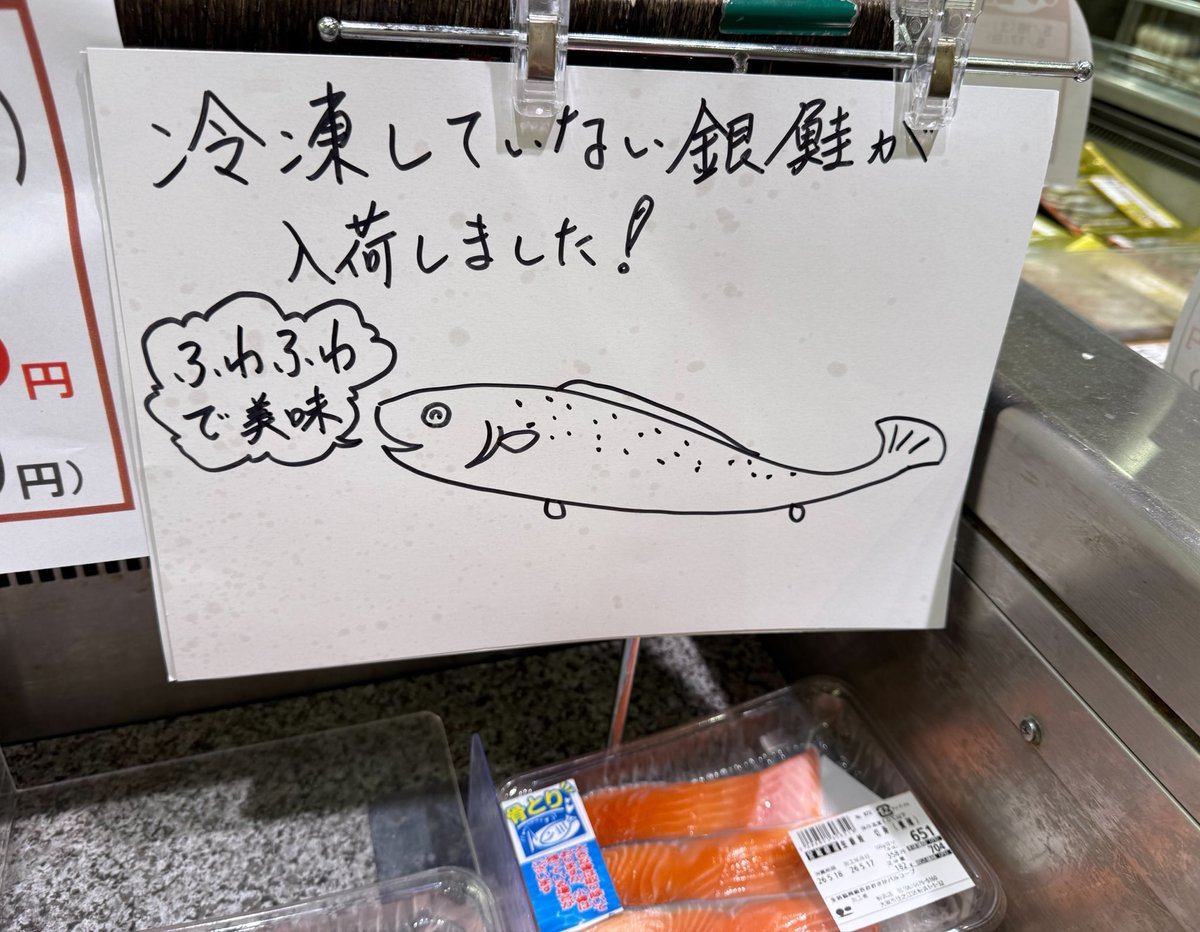 冷凍していない銀鮭が
入荷しました!
ふわふわ
で美味
円
円)
骨とり
26.5.18
26.5.17
651
704